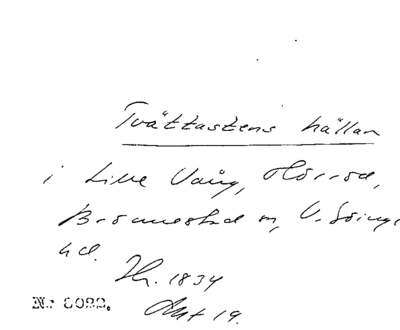 Tvättastens hällan
i Lille Vång, Hörröd,
Brönnestad sn, V. Göinge
hd.
1834
Akt 19.